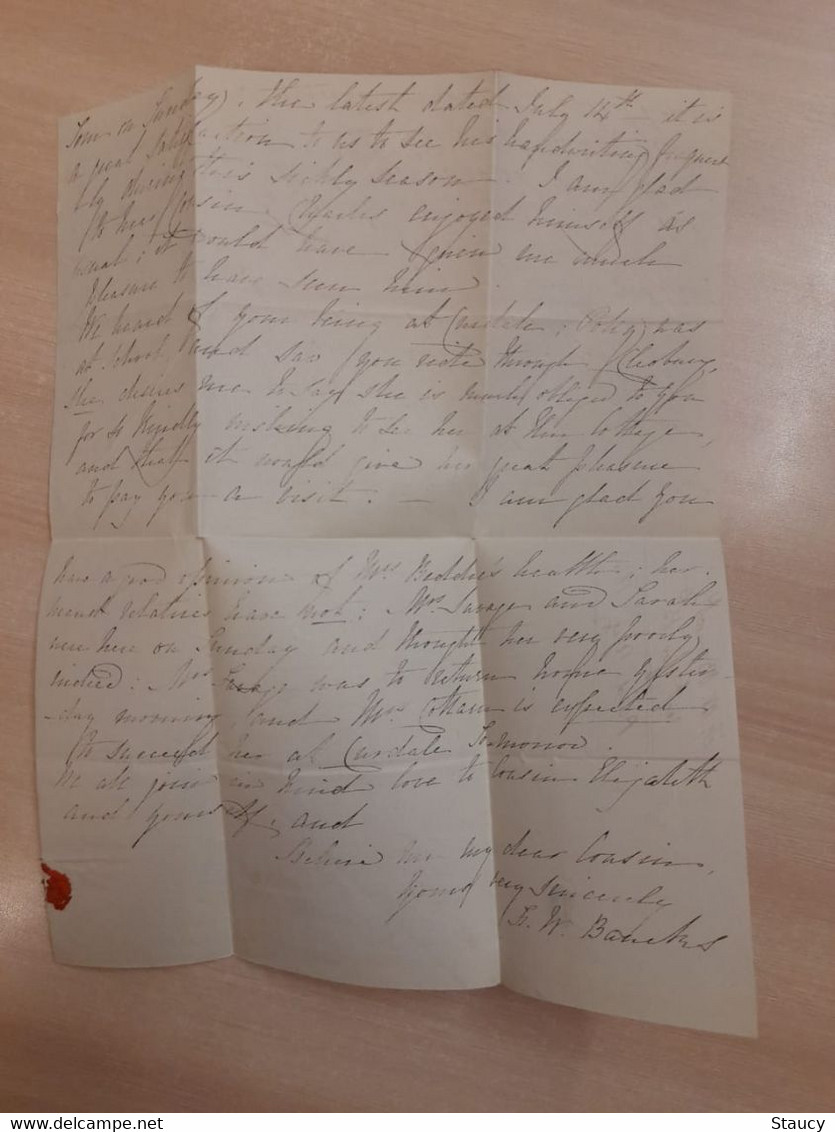 Tom on Sunday, the latest dated July 14th it is
a great satisfaction to us to see his handwriting frequent
ly during this sickly season. I am glad
to hear Cousin Charles enjoyed himself as
usual; it would have given me much
pleasure to have seen him.
We heard of your being at Curdale; was
at School, and saw you ride through Cleobury,
She desires me to say she is much obliged to you
for so kindly wishing to see her at the Cottage,
and that it would give her great pleasure
to pay you a visit. — I am glad you
have a good opinion of Mrs Beddoe's health; her
relatives have not: Mrs Savage and Sarah
were here on Sunday and thought her very poorly
indeed: Mrs Savage was to return home yester-
-day morning, and Mrs Cottam is expected
to succeed her at Curdale Tomorrow.
We all join in kind love to Cousin Elizabeth
and yourself, and
Believe me my dear Cousin,
Yours very sincerely
W. Banckes
delcampe.net
Staucy